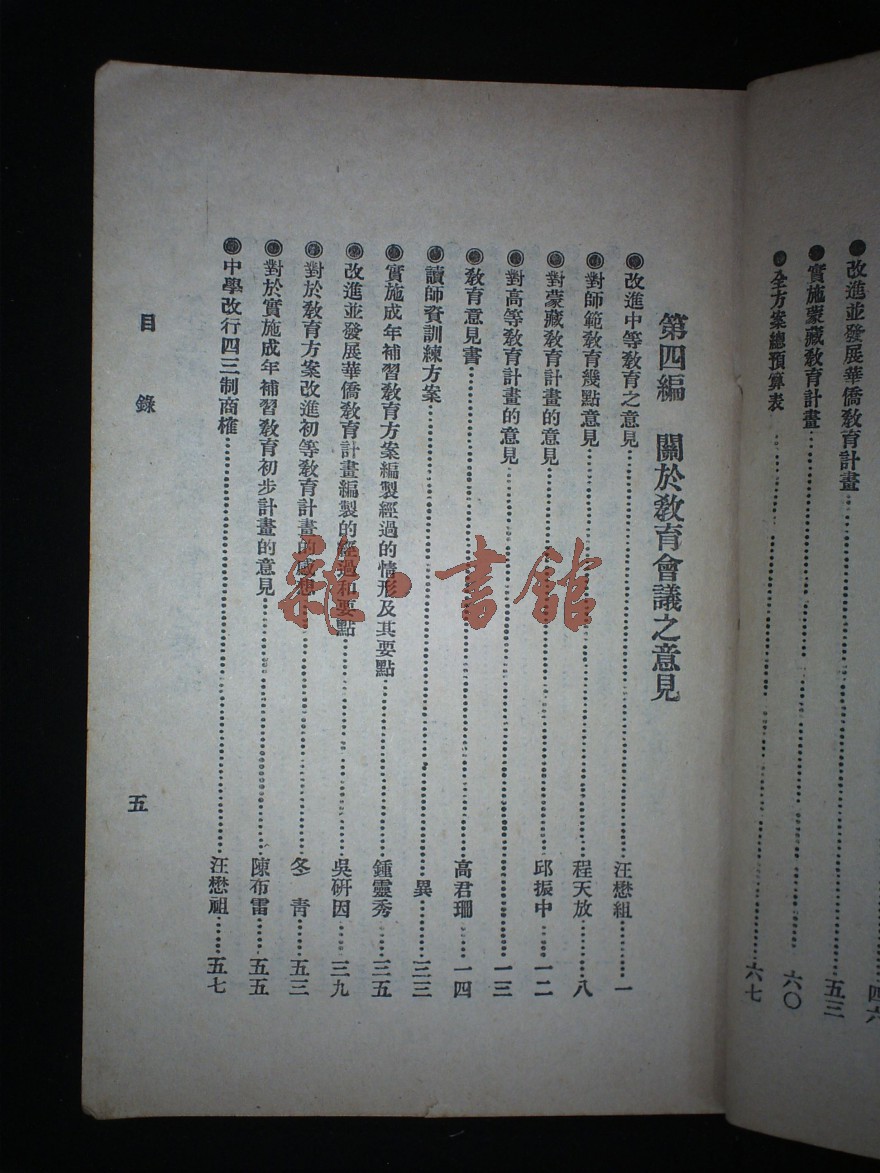 改進並發展華僑教育計畫
四六
實施蒙藏教育計畫……五三
六〇
全方案總預算表……六七
第四編　關於教育會議之意見
改進中等教育之意見……汪懋組……一
對師範教育幾點意見……程天放……八
對蒙藏教育計畫的意見……邱振中……一二
對高等教育計畫的意見……一三
教育意見書……高君珊……一四
讀師資訓練方案……異……三三
實施成年補習教育方案編製經過的情形及其要點……鍾靈秀……三五
改進並發展華僑教育計畫編製的經過和要點……吳研因……三九
對於教育方案改進初等教育計畫的感想……冬青……五三
對於實施成年補習教育初步計畫的意見……陳布雷……五五
中學改行四三制商榷……汪懋祖……五七
目錄
五
雜·書館